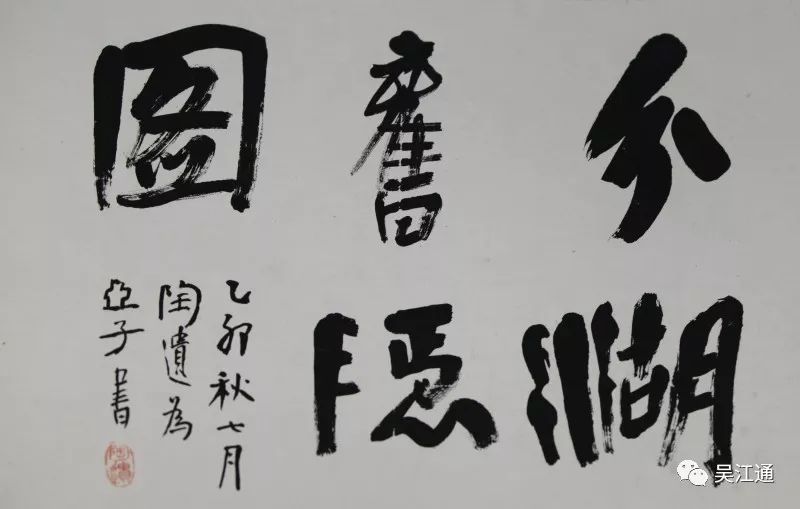 分湖
舊隱
圖
乙卯秋七月
陶遺為
亞子書
吴江通